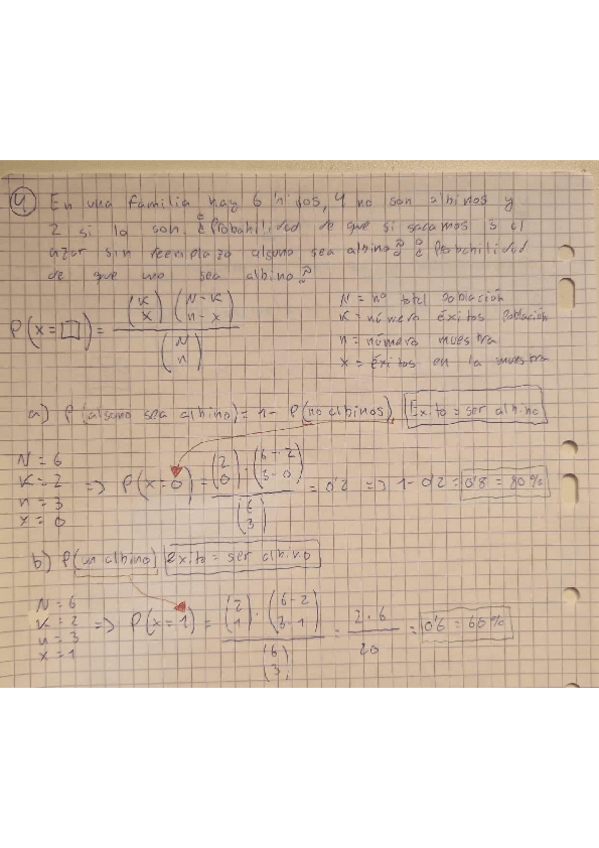 4 En una familia hay 6 hijos, 4 no son albinos y
2 si lo son, ¿Probabilidad de que si sacamos 3 al
azar sin reemplazo alguno sea albino? ¿Probabilidad
de que uno sea albino?
P(x=□) = (K x) (N-K n-x) / (N n)
N = nº total población
K = número éxitos población
n = número muestra
x = éxitos en la muestra
a) P(alguno sea albino) = 1 - P(no albinos) Éxito = ser albino
N = 6
K = 2
n = 3
x = 0
=> P(x=0) = (2 0) · (6-2 3-0) / (6 3) = 0'2 => 1-0'2 = 0'8 = 80%
b) P(un albino) Éxito = ser albino
N = 6
K = 2
n = 3
x = 1
=> P(x=1) = (2 1) · (6-2 3-1) / (6 3) = 2·6 / 20 = 0'6 = 60%